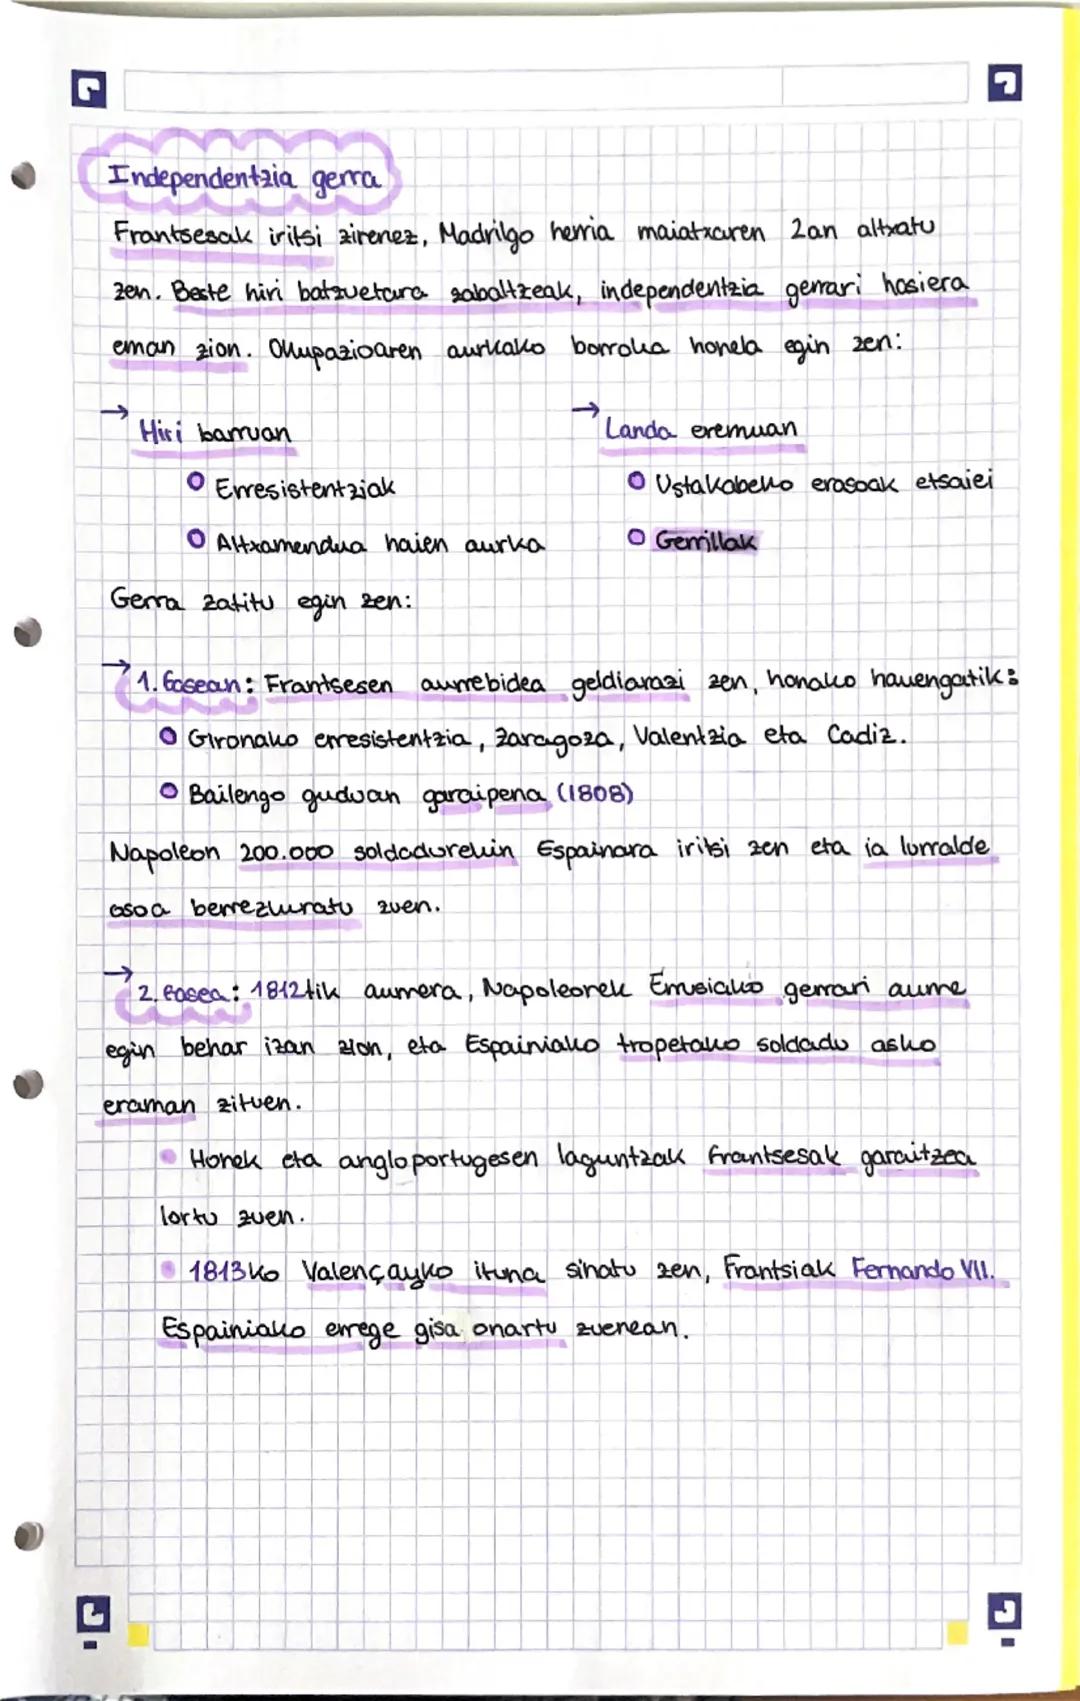 Independentzia gerra
Frantsesak iritsi zirenez, Madrilgo herria maiatzaren 2an altxatu
zen. Beste hiri batzuetara zabaltzeak, independentzia gerrari hasiera
eman zion. Okupazioaren aurkako borroka honela egin zen:
→ Hiri barruan
Erresistentziak
Altxamendua haien aurka
→ Landa eremuan
Ustakabeko erasoak etsaiei
Gerrillak
Gerra zatitu egin zen:
→ 1. fasean: Frantsesen aurrebidea geldiarazi zen, honako hauengatik:
Gironako erresistentzia, Zaragoza, Valentzia eta Cadiz.
Bailengo guduan garaipena (1808)
Napoleon 200.000 soldadurekin Espainara iritsi zen eta ia lurralde
osoa berrezkuratu zuen.
→ 2. fasea: 1812tik aurrera, Napoleonek Errusiako gerrari aurre
egin behar izan zion, eta Espainiako tropetako soldadu asko
eraman zituen.
Honek eta angloportugesen laguntzak frantsesak garaitzea
lortu zuen.
1813ko Valençayko ituna sinatu zen, Frantsiak Fernando VII.
Espainiako errege gisa onartu zuenean.